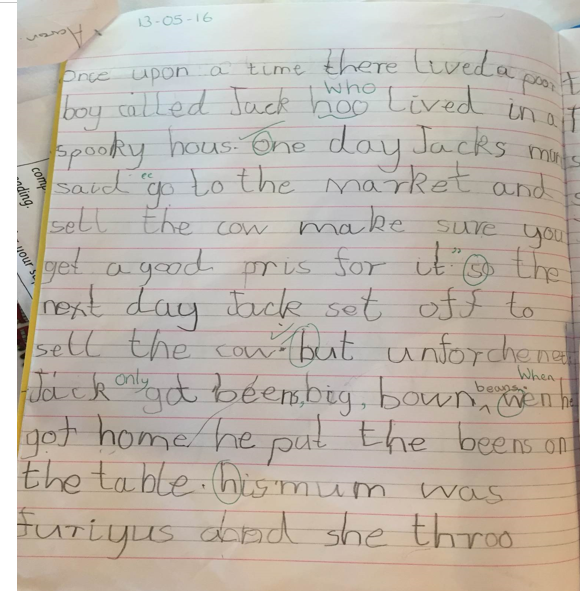 Aaran
13-05-16
comp
nding.
your su
Once upon a time there lived a poor
who
boy called Jack hoo lived in a
spooky hous. One day Jacks mum
said "go to the market and
sell the cow make sure you
get a good pris for it." so the
next day Jack set off to
sell the cow. but unforchenet
only when
Jack got beens, big, bown, beans. wen he
got home he put the beens on
the table. his mum was
furiyus and she throo